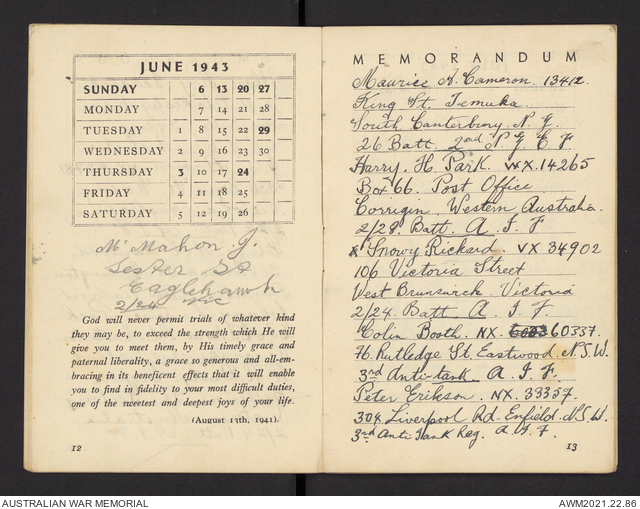 JUNE 1943
SUNDAY 6 13 20 27
MONDAY 7 14 21 28
TUESDAY 1 8 15 22 29
WEDNESDAY 2 9 16 23 30
THURSDAY 3 10 17 24
FRIDAY 4 11 18 25
SATURDAY 5 12 19 26
McMahon J.
Lester St
Eaglehawk
2/24 Vic
God will never permit trials of whatever kind
they may be, to exceed the strength which He will
give you to meet them, by His timely grace and
paternal liberality, a grace so generous and all-em-
bracing in its beneficent effects that it will enable
you to find in fidelity to your most difficult duties,
one of the sweetest and deepest joys of your life.
(August 13th, 1941).
12
MEMORANDUM
Maurice K. Cameron. 13412
King St. Temuka.
South Canterbury. N. Z
26 Batt. 2nd N. Z. E. F
Harry. H. Park. WX.14265
Box 66. Post Office
Corrigin. Western Australia.
2/28. Batt. A. I. F
x Snowy Rickard. VX 34902
106 Victoria Street
West Brunswick. Victoria
2/24. Batt A. I. F.
Colin Booth. NX. 60337.
76. Rutledge St. Eastwood. N.S.W.
3rd Anti-tank. A. I. F.
Peter Erikson. NX. 33357.
304 Liverpool Rd. Enfield. N.S.W.
3rd Anti Tank Reg. A. I. F.
13
AUSTRALIAN WAR MEMORIAL
AWM2021.22.86